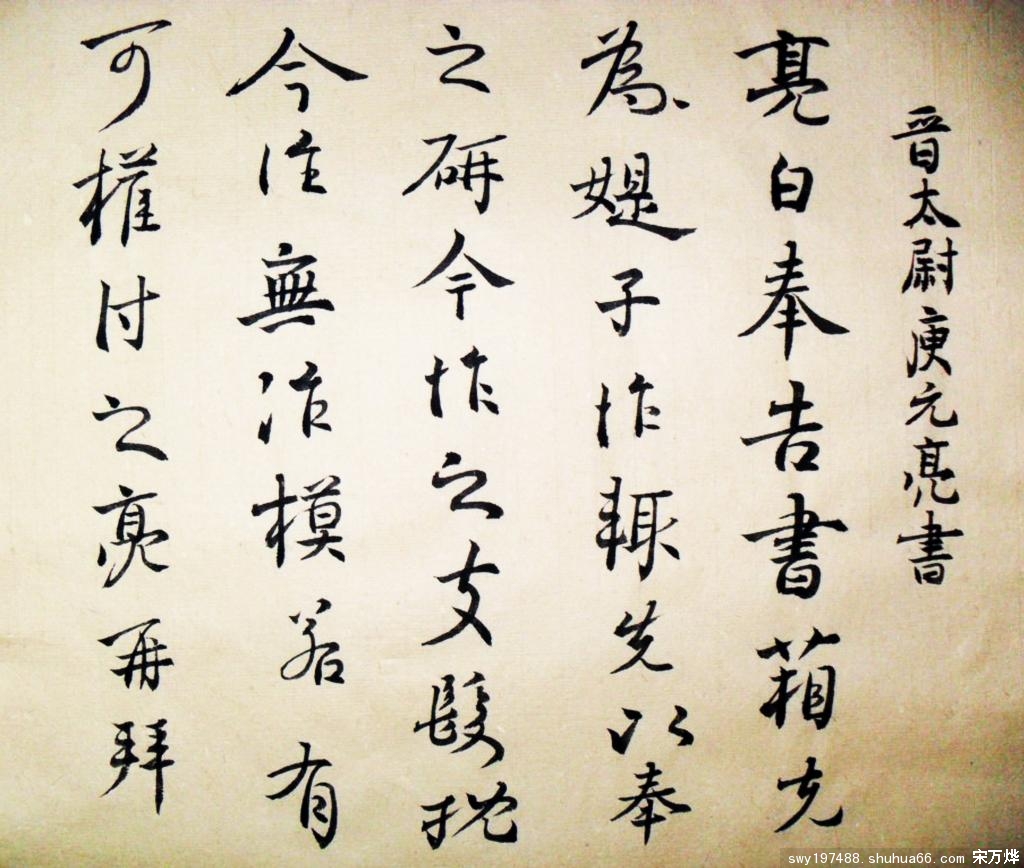 晉太尉庾元亮書
亮白奉告書葙先
為媞子作輙先以奉
之研今作之支髮捝
今往無治模若有
可權付之亮再拜
swy197488.shuhua66.com 宋万烨